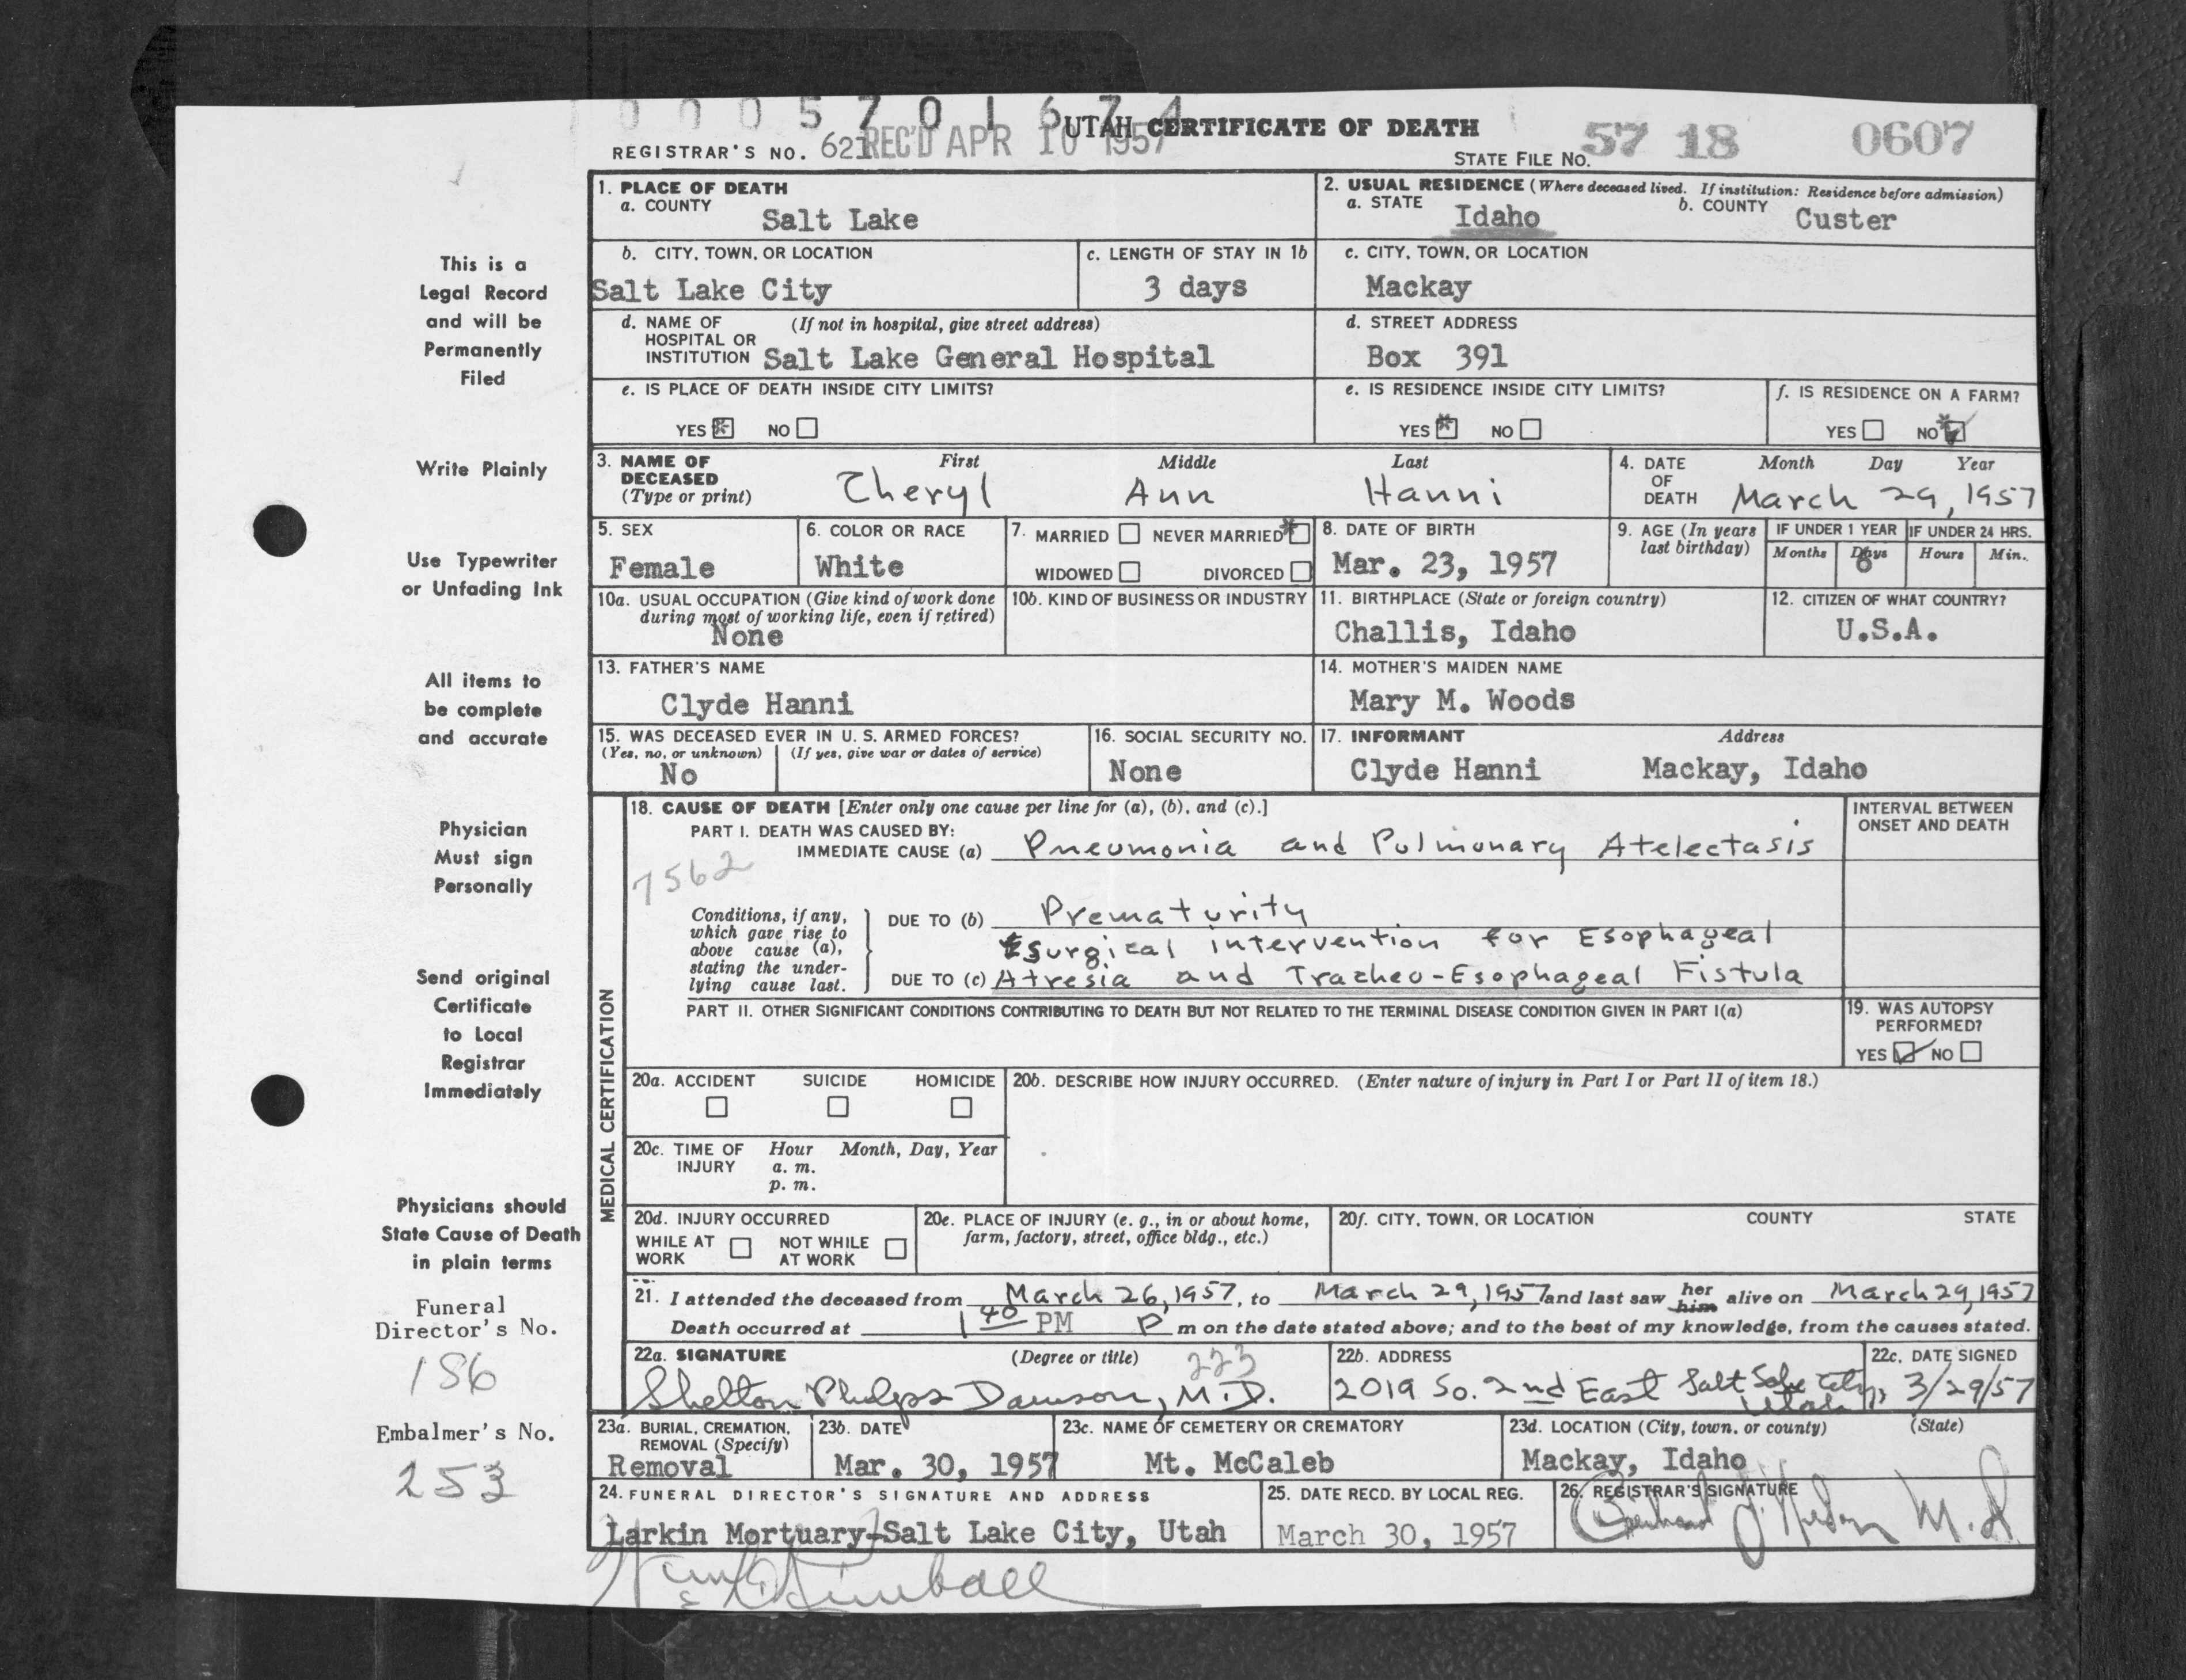 0 0 0 5 7 0 1 6 7 4
UTAH CERTIFICATE OF DEATH
REGISTRAR'S NO. 621 REC'D APR 10 1957
STATE FILE NO. 57 18 0607
1. PLACE OF DEATH
a. COUNTY Salt Lake
2. USUAL RESIDENCE (Where deceased lived. If institution: Residence before admission)
a. STATE Idaho b. COUNTY Custer
b. CITY, TOWN, OR LOCATION Salt Lake City
c. LENGTH OF STAY IN 1b 3 days
c. CITY, TOWN, OR LOCATION Mackay
d. NAME OF HOSPITAL OR INSTITUTION (If not in hospital, give street address)
Salt Lake General Hospital
d. STREET ADDRESS
Box 391
e. IS PLACE OF DEATH INSIDE CITY LIMITS?
YES * NO
e. IS RESIDENCE INSIDE CITY LIMITS?
YES * NO
f. IS RESIDENCE ON A FARM?
YES NO *
3. NAME OF DECEASED (Type or print)
First Middle Last
Cheryl Ann Hanni
4. DATE OF DEATH Month Day Year
March 29, 1957
5. SEX Female
6. COLOR OR RACE White
7. MARRIED NEVER MARRIED *
WIDOWED DIVORCED
8. DATE OF BIRTH Mar. 23, 1957
9. AGE (In years last birthday)
IF UNDER 1 YEAR IF UNDER 24 HRS.
Months Days Hours Min.
6
10a. USUAL OCCUPATION (Give kind of work done during most of working life, even if retired)
None
10b. KIND OF BUSINESS OR INDUSTRY
11. BIRTHPLACE (State or foreign country)
Challis, Idaho
12. CITIZEN OF WHAT COUNTRY?
U.S.A.
13. FATHER'S NAME
Clyde Hanni
14. MOTHER'S MAIDEN NAME
Mary M. Woods
15. WAS DECEASED EVER IN U. S. ARMED FORCES?
(Yes, no, or unknown) (If yes, give war or dates of service)
No
16. SOCIAL SECURITY NO.
None
17. INFORMANT Address
Clyde Hanni Mackay, Idaho
MEDICAL CERTIFICATION
18. CAUSE OF DEATH [Enter only one cause per line for (a), (b), and (c).]
PART I. DEATH WAS CAUSED BY:
IMMEDIATE CAUSE (a) Pneumonia and Pulmonary Atelectasis
INTERVAL BETWEEN ONSET AND DEATH
7562
Conditions, if any, which gave rise to above cause (a), stating the underlying cause last.
DUE TO (b) Prematurity
Surgical intervention for Esophageal
DUE TO (c) Atresia and Tracheo-Esophageal Fistula
PART II. OTHER SIGNIFICANT CONDITIONS CONTRIBUTING TO DEATH BUT NOT RELATED TO THE TERMINAL DISEASE CONDITION GIVEN IN PART I(a)
19. WAS AUTOPSY PERFORMED?
YES ✓ NO
20a. ACCIDENT SUICIDE HOMICIDE
20b. DESCRIBE HOW INJURY OCCURRED. (Enter nature of injury in Part I or Part II of item 18.)
20c. TIME OF INJURY Hour Month, Day, Year
a. m.
p. m.
20d. INJURY OCCURRED
WHILE AT WORK NOT WHILE AT WORK
20e. PLACE OF INJURY (e. g., in or about home, farm, factory, street, office bldg., etc.)
20f. CITY, TOWN, OR LOCATION COUNTY STATE
21. I attended the deceased from March 26, 1957, to March 29, 1957 and last saw her him alive on March 29, 1957
Death occurred at 1 40 PM P m on the date stated above; and to the best of my knowledge, from the causes stated.
22a. SIGNATURE (Degree or title) 223
Shelton Phelps Dawson, M.D.
22b. ADDRESS
2019 So. 2nd East Salt Lake City, Utah
22c. DATE SIGNED
3/29/57
23a. BURIAL, CREMATION, REMOVAL (Specify)
Removal
23b. DATE
Mar. 30, 1957
23c. NAME OF CEMETERY OR CREMATORY
Mt. McCaleb
23d. LOCATION (City, town, or county) (State)
Mackay, Idaho
24. FUNERAL DIRECTOR'S SIGNATURE AND ADDRESS
Larkin Mortuary-Salt Lake City, Utah
Kimball
25. DATE RECD. BY LOCAL REG.
March 30, 1957
26. REGISTRAR'S SIGNATURE
M.D.
This is a
Legal Record
and will be
Permanently
Filed
Write Plainly
Use Typewriter
or Unfading Ink
All items to
be complete
and accurate
Physician
Must sign
Personally
Send original
Certificate
to Local
Registrar
Immediately
Physicians should
State Cause of Death
in plain terms
Funeral
Director's No.
186
Embalmer's No.
253